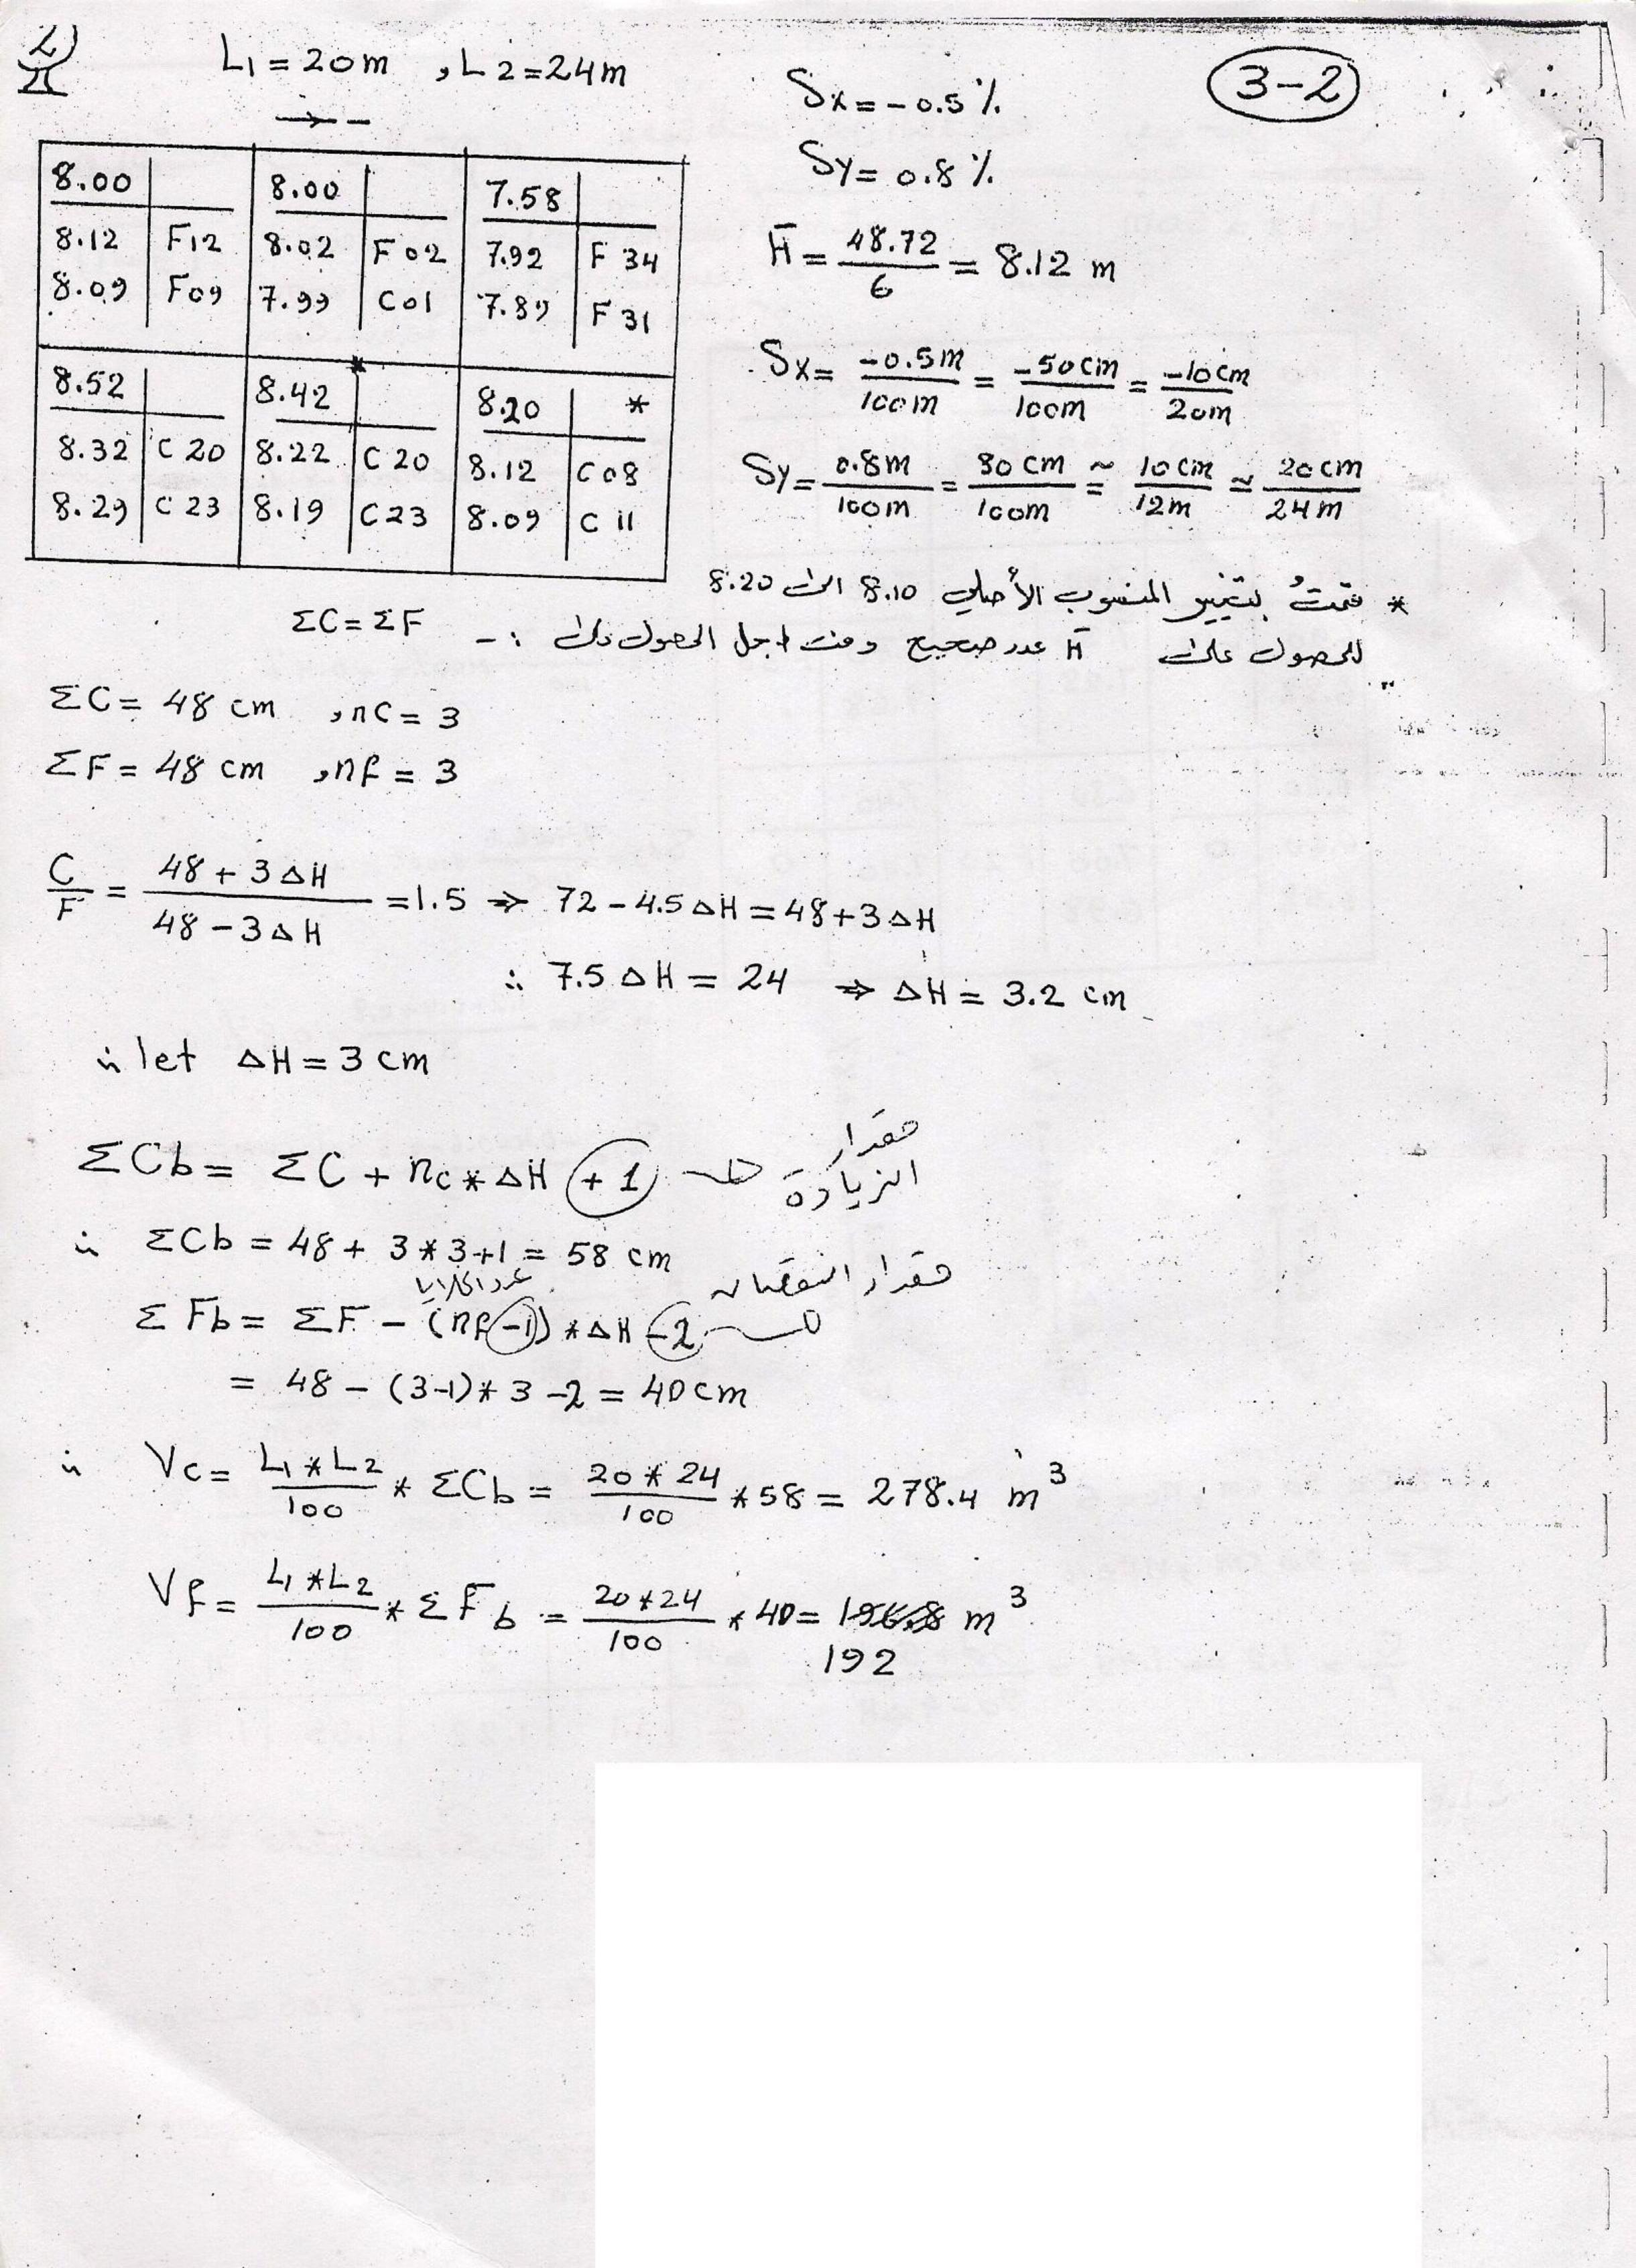 L1 = 20m , L2 = 24m
3-2
Sx = -0.5 %
Sy = 0.8 %
8.00 8.00 7.58
8.12 F12 8.02 F02 7.92 F 34
8.09 F09 7.99 C01 7.89 F 31
8.52 8.42 * 8.20 *
8.32 C 20 8.22 C 20 8.12 C08
8.29 C 23 8.19 C23 8.09 C 11
H̄ = 48.72 / 6 = 8.12 m
Sx = -0.5m / 100m = -50cm / 100m = -10cm / 20m
Sy = 0.8m / 100m = 80 cm / 100m ≃ 10cm / 12m ≃ 20cm / 24m
* قمتُ بتغيير المنسوب الأصلي 8.10 الى 8.20
للحصول على H̄ عدد صحيح ومن اجل الحصول على :-
ΣC = ΣF
ΣC = 48 cm , nC = 3
ΣF = 48 cm , nf = 3
C / F = 48 + 3ΔH / 48 - 3ΔH = 1.5 ⇒ 72 - 4.5ΔH = 48 + 3ΔH
∴ 7.5 ΔH = 24 ⇒ ΔH = 3.2 cm
∴ let ΔH = 3 cm
مقدار
الزيادة
ΣCb = ΣC + nc * ΔH + 1
∴ ΣCb = 48 + 3 * 3 + 1 = 58 cm
عدد الخلايا
مقدار النقصان
Σ Fb = ΣF - (nf - 1) * ΔH - 2
= 48 - (3-1) * 3 - 2 = 40cm
∴ Vc = L1 * L2 / 100 * ΣCb = 20 * 24 / 100 * 58 = 278.4 m³
Vf = L1 * L2 / 100 * ΣFb = 20 * 24 / 100 * 40 = m³
192